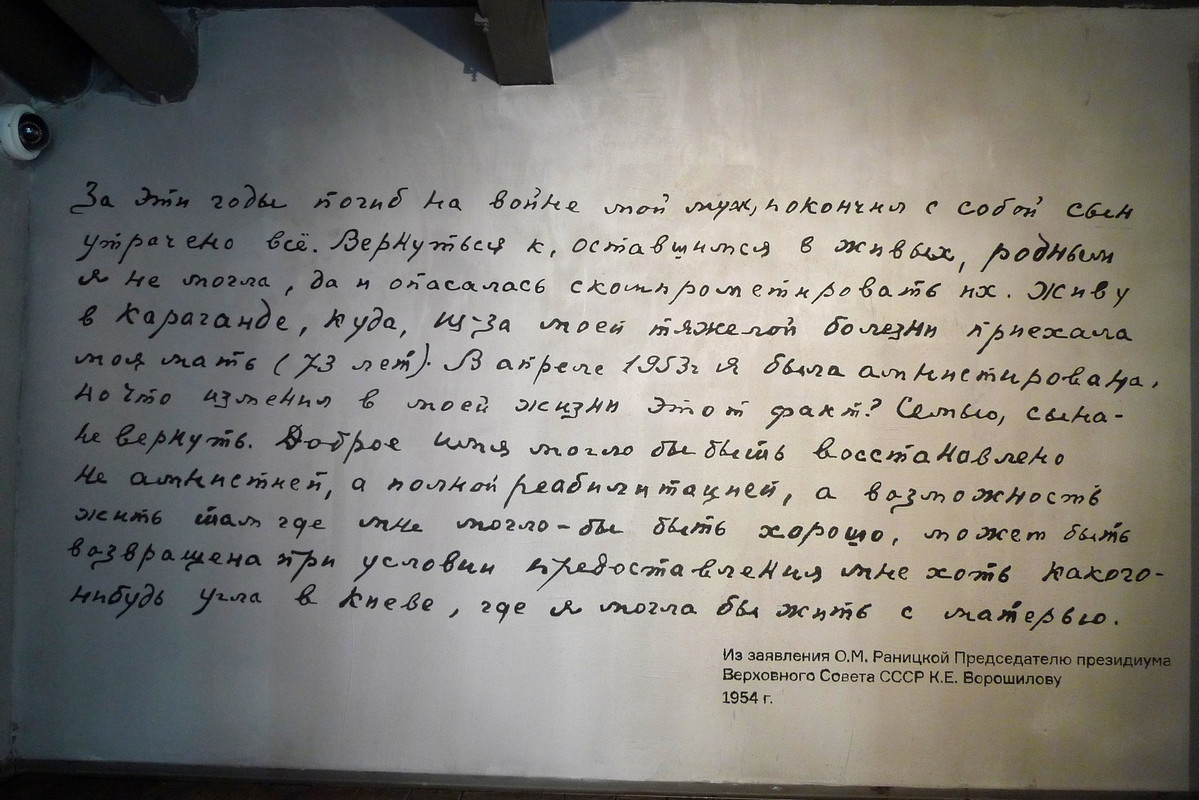 За эти годы погиб на войне мой муж, покончил с собой сын
утрачено всё. Вернуться к, оставшимся в живых, родным
я не могла, да и опасалась скомпрометировать их. Живу
в Караганде, куда, из-за моей тяжелой болезни приехала
моя мать (73 лет). В апреле 1953г я была амнистирована.
но что изменил в моей жизни этот факт? Семью, сына-
не вернуть. Доброе имя могло бы быть восстановлено
не амнистией, а полной реабилитацией, а возможность
жить там где мне могло-бы быть хорошо, может быть
возвращена при условии предоставления мне хоть какого-
нибудь угла в Киеве, где я могла бы жить с матерью.
Из заявления О.М. Раницкой Председателю президиума
Верховного Совета СССР К.Е. Ворошилову
1954 г.